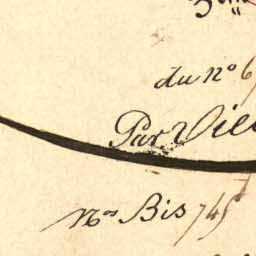 du n° 6
Par Vie
Nos Bis 745